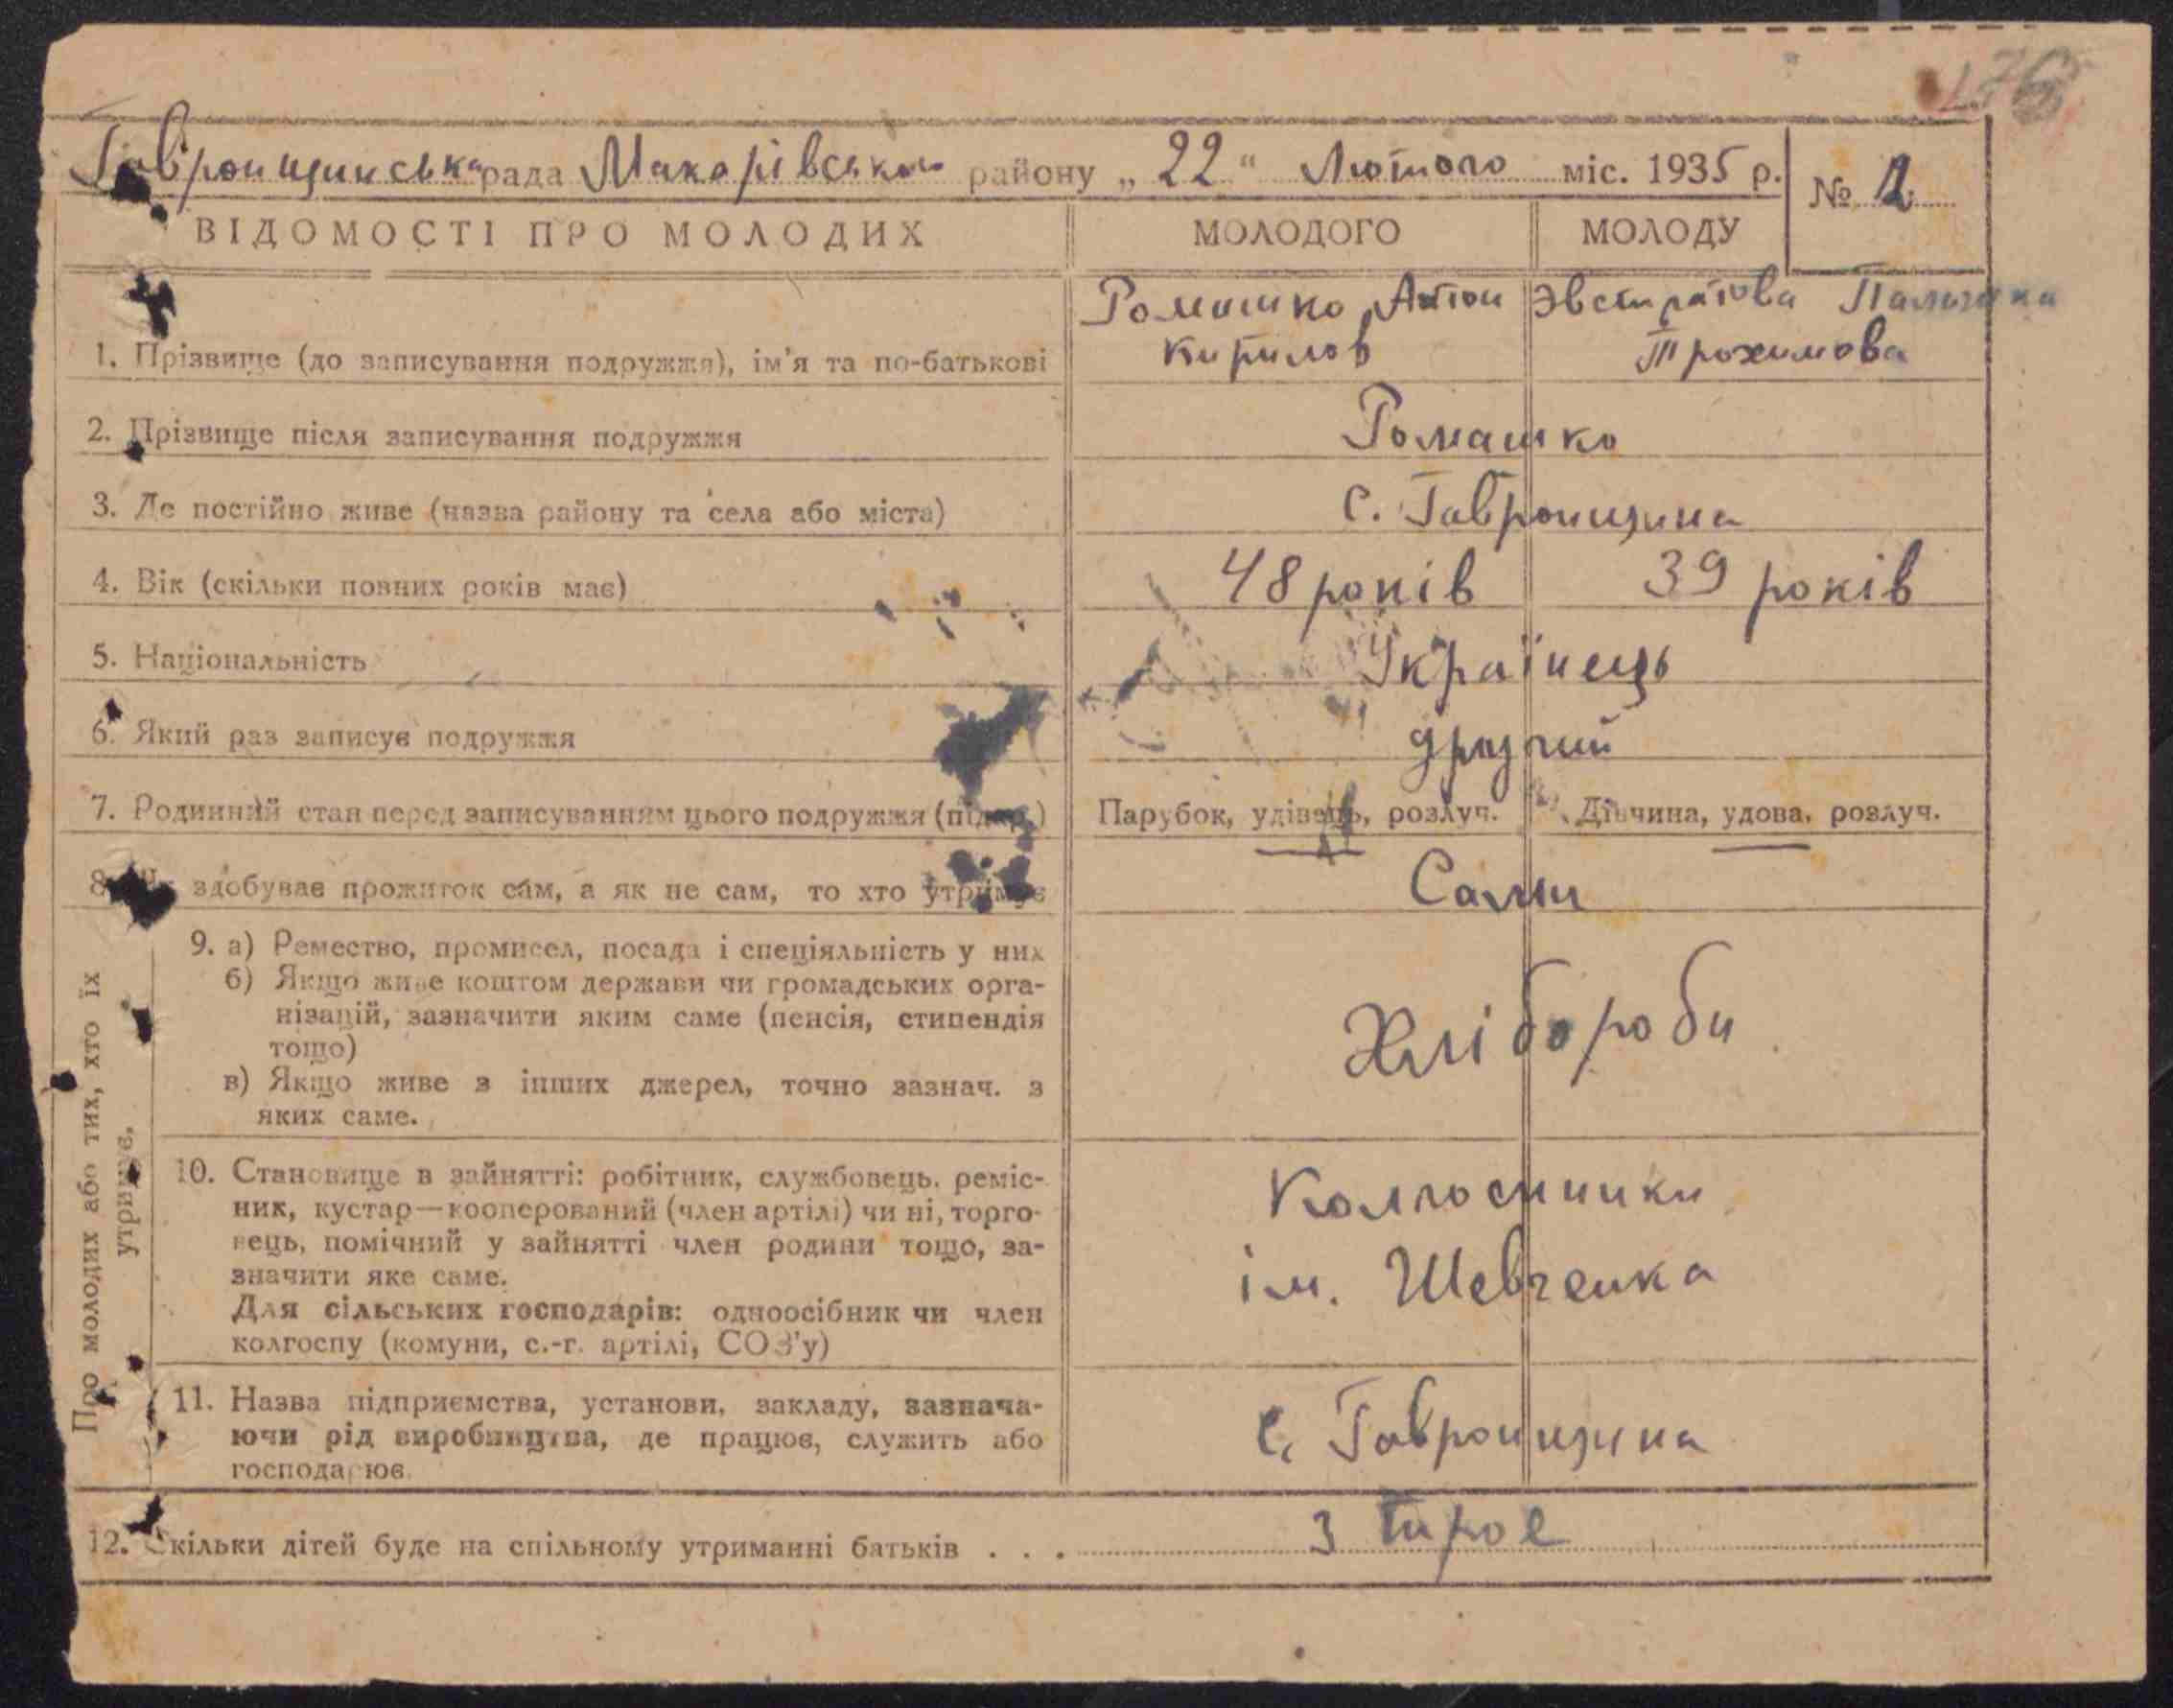 Гавронщинська рада Макарівського району „22“ Лютого міс. 1935 р.
№
ВІДОМОСТІ ПРО МОЛОДИХ
МОЛОДОГО
МОЛОДУ
1. Прізвище (до записування подружжя), ім'я та по-батькові
Ромашко Антон
Кирилов
Эвстратова
Трохимова
2. Прізвище після записування подружжя
Ромашко
3. Де постійно живе (назва району та села або міста)
с. Гавронщина
4. Вік (скільки повних років має)
48 років
39 років
5. Національність
Українець
6. Який раз записує подружжя
другий
7. Родинний стан перед записуванням цього подружжя (підкр.)
Парубок, удівець, розлуч.
Дівчина, удова, розлуч.
8. Чи здобуває прожиток сам, а як не сам, то хто утримує
Сами
Про молодих або тих, хто їх
утримує.
9. а) Ремество, промисел, посада і спеціяльність у них
б) Якщо живе коштом держави чи громадських орга-
нізацій, зазначити яким саме (пенсія, стипендія
тощо)
в) Якщо живе з інших джерел, точно зазнач. з
яких саме.
Хлібороби
10. Становище в зайнятті: робітник, службовець, реміс-
ник, кустар—кооперований (член артілі) чи ні, торго-
вець, помічний у зайнятті член родини тощо, за-
значити яке саме.
Для сільських господарів: одноосібник чи член
колгоспу (комуни, с.-г. артілі, СОЗ'у)
Колгоспники
ім. Шевченка
11. Назва підприємства, установи, закладу, зазнача-
ючи рід виробництва, де працює, служить або
господарює.
с. Гавронщина
12. Скільки дітей буде на спільному утриманні батьків . . .
3 троє